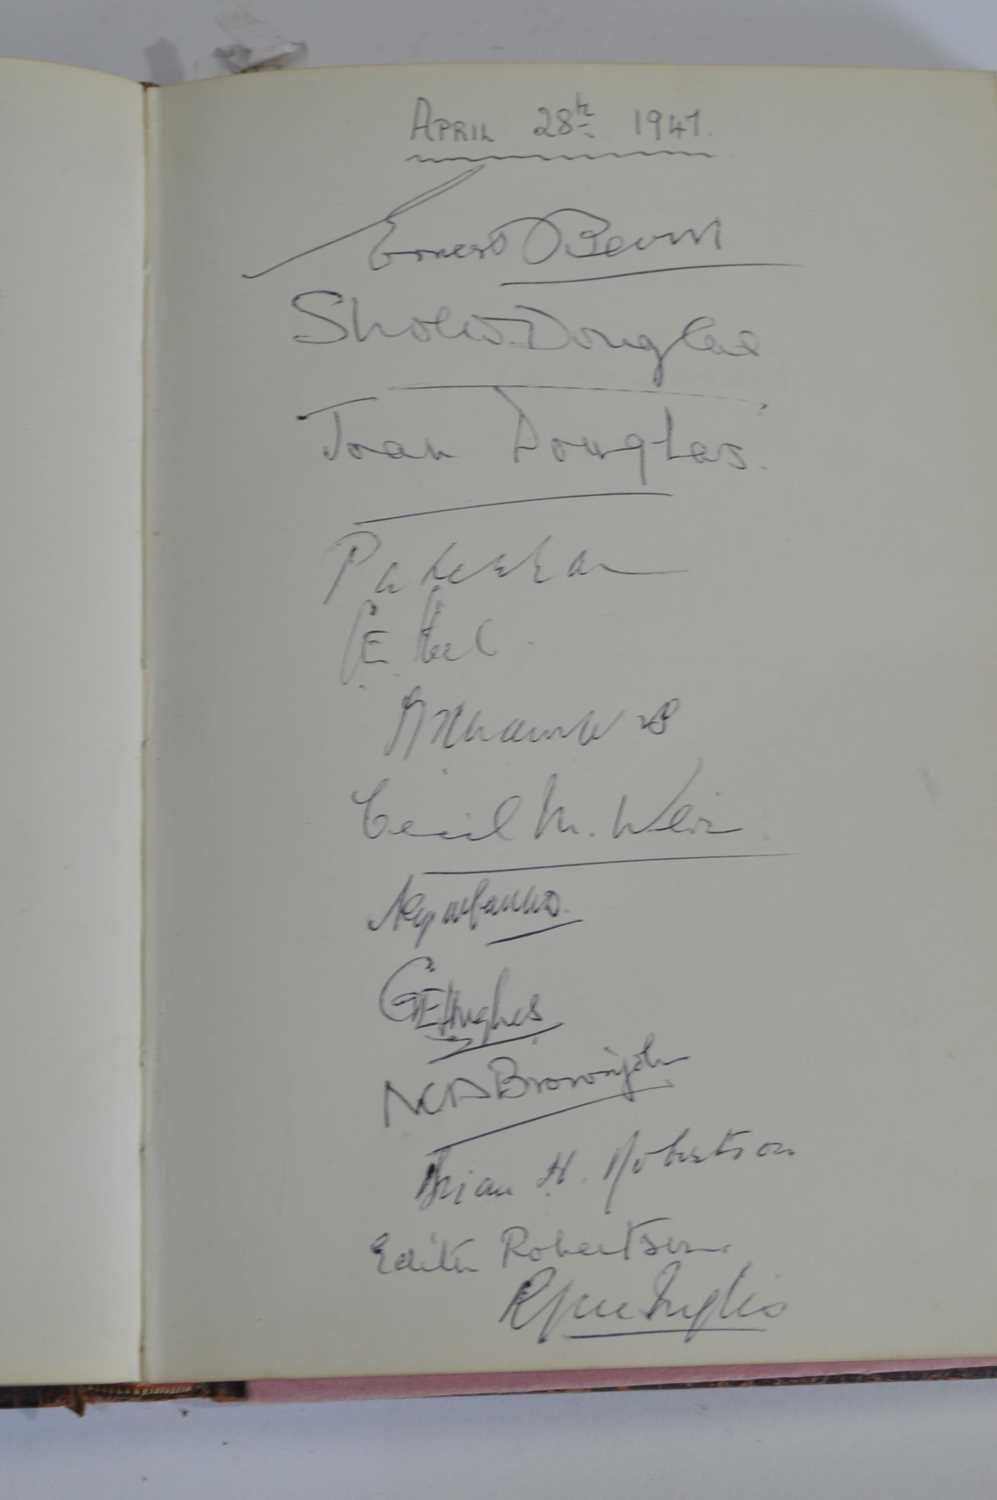 APRIL 28th 1947.
Ernest Bevin
Sholto Douglas
Joan Douglas.
Pakenham
C E Steel.
Cecil M. Weir
GE Hughes
NCD Brownjohn
Brian H. Robertson
Edith Robertson.
Inglis